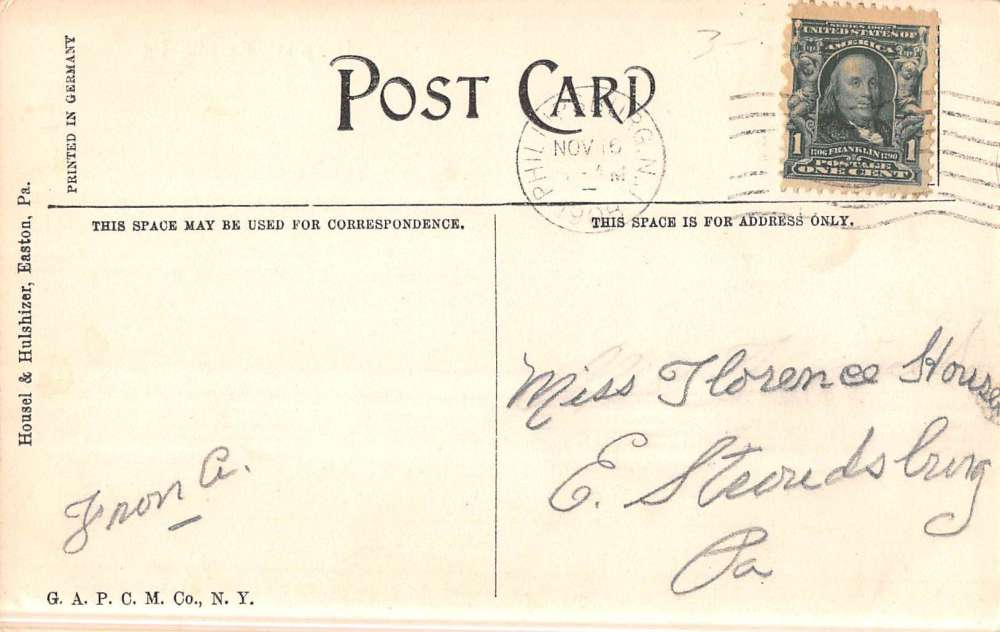 POST CARD
PRINTED IN GERMANY
Housel & Hulshizer, Easton, Pa.
SERIES 1902
UNITED STATES OF
AMERICA
1 1806 FRANKLIN 1790 1
POSTAGE
ONE CENT
PHILLIPSBURG, N.J.
NOV 16
M
1908
3-
THIS SPACE MAY BE USED FOR CORRESPONDENCE.
THIS SPACE IS FOR ADDRESS ONLY.
Miss Florence House
E. Stroudsburg
Pa
From A.
G. A. P. C. M. Co., N. Y.